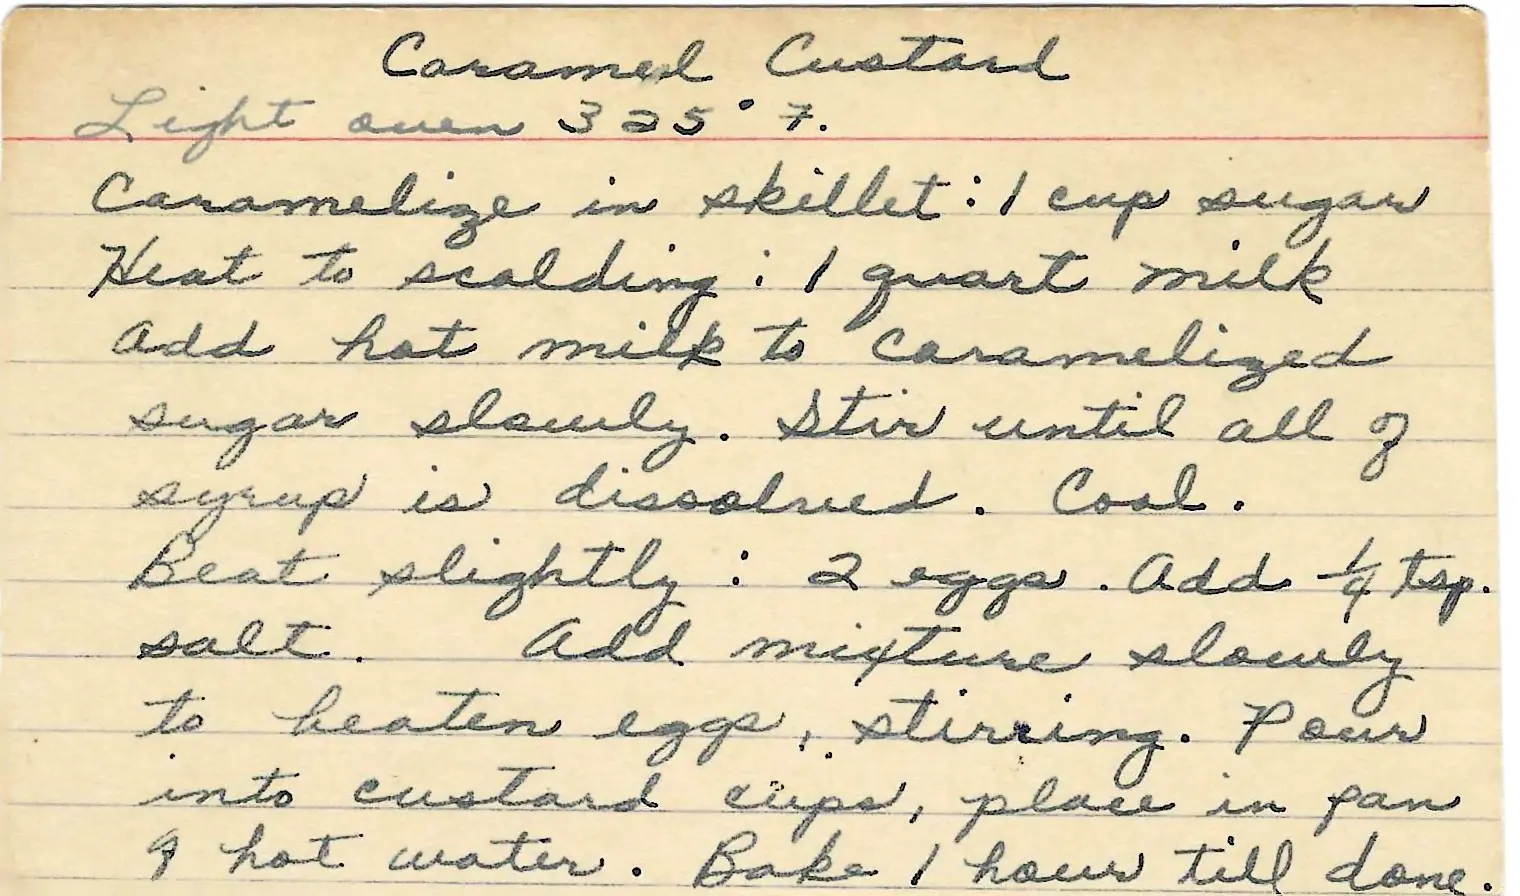 Caramel Custard
Light oven 325° F.
Caramelize in skillet: 1 cup sugar
Heat to scalding: 1 quart milk
Add hot milk to caramelized
sugar slowly. Stir until all of
syrup is dissolved. Cool.
Beat slightly: 2 eggs. Add 1/4 tsp.
salt. Add mixture slowly
to beaten eggs, stirring. Pour
into custard cups, place in pan
of hot water. Bake 1 hour till done.